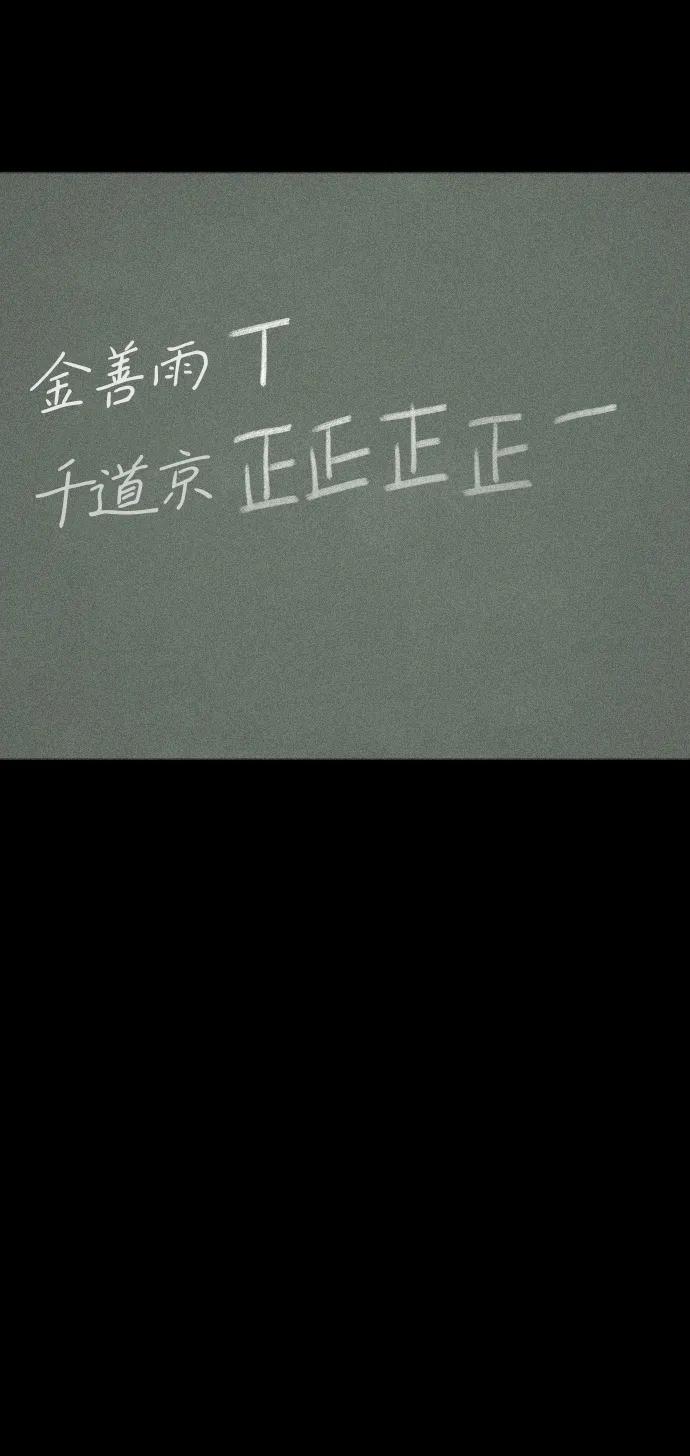 金善雨 丅
千道京 正正正正一